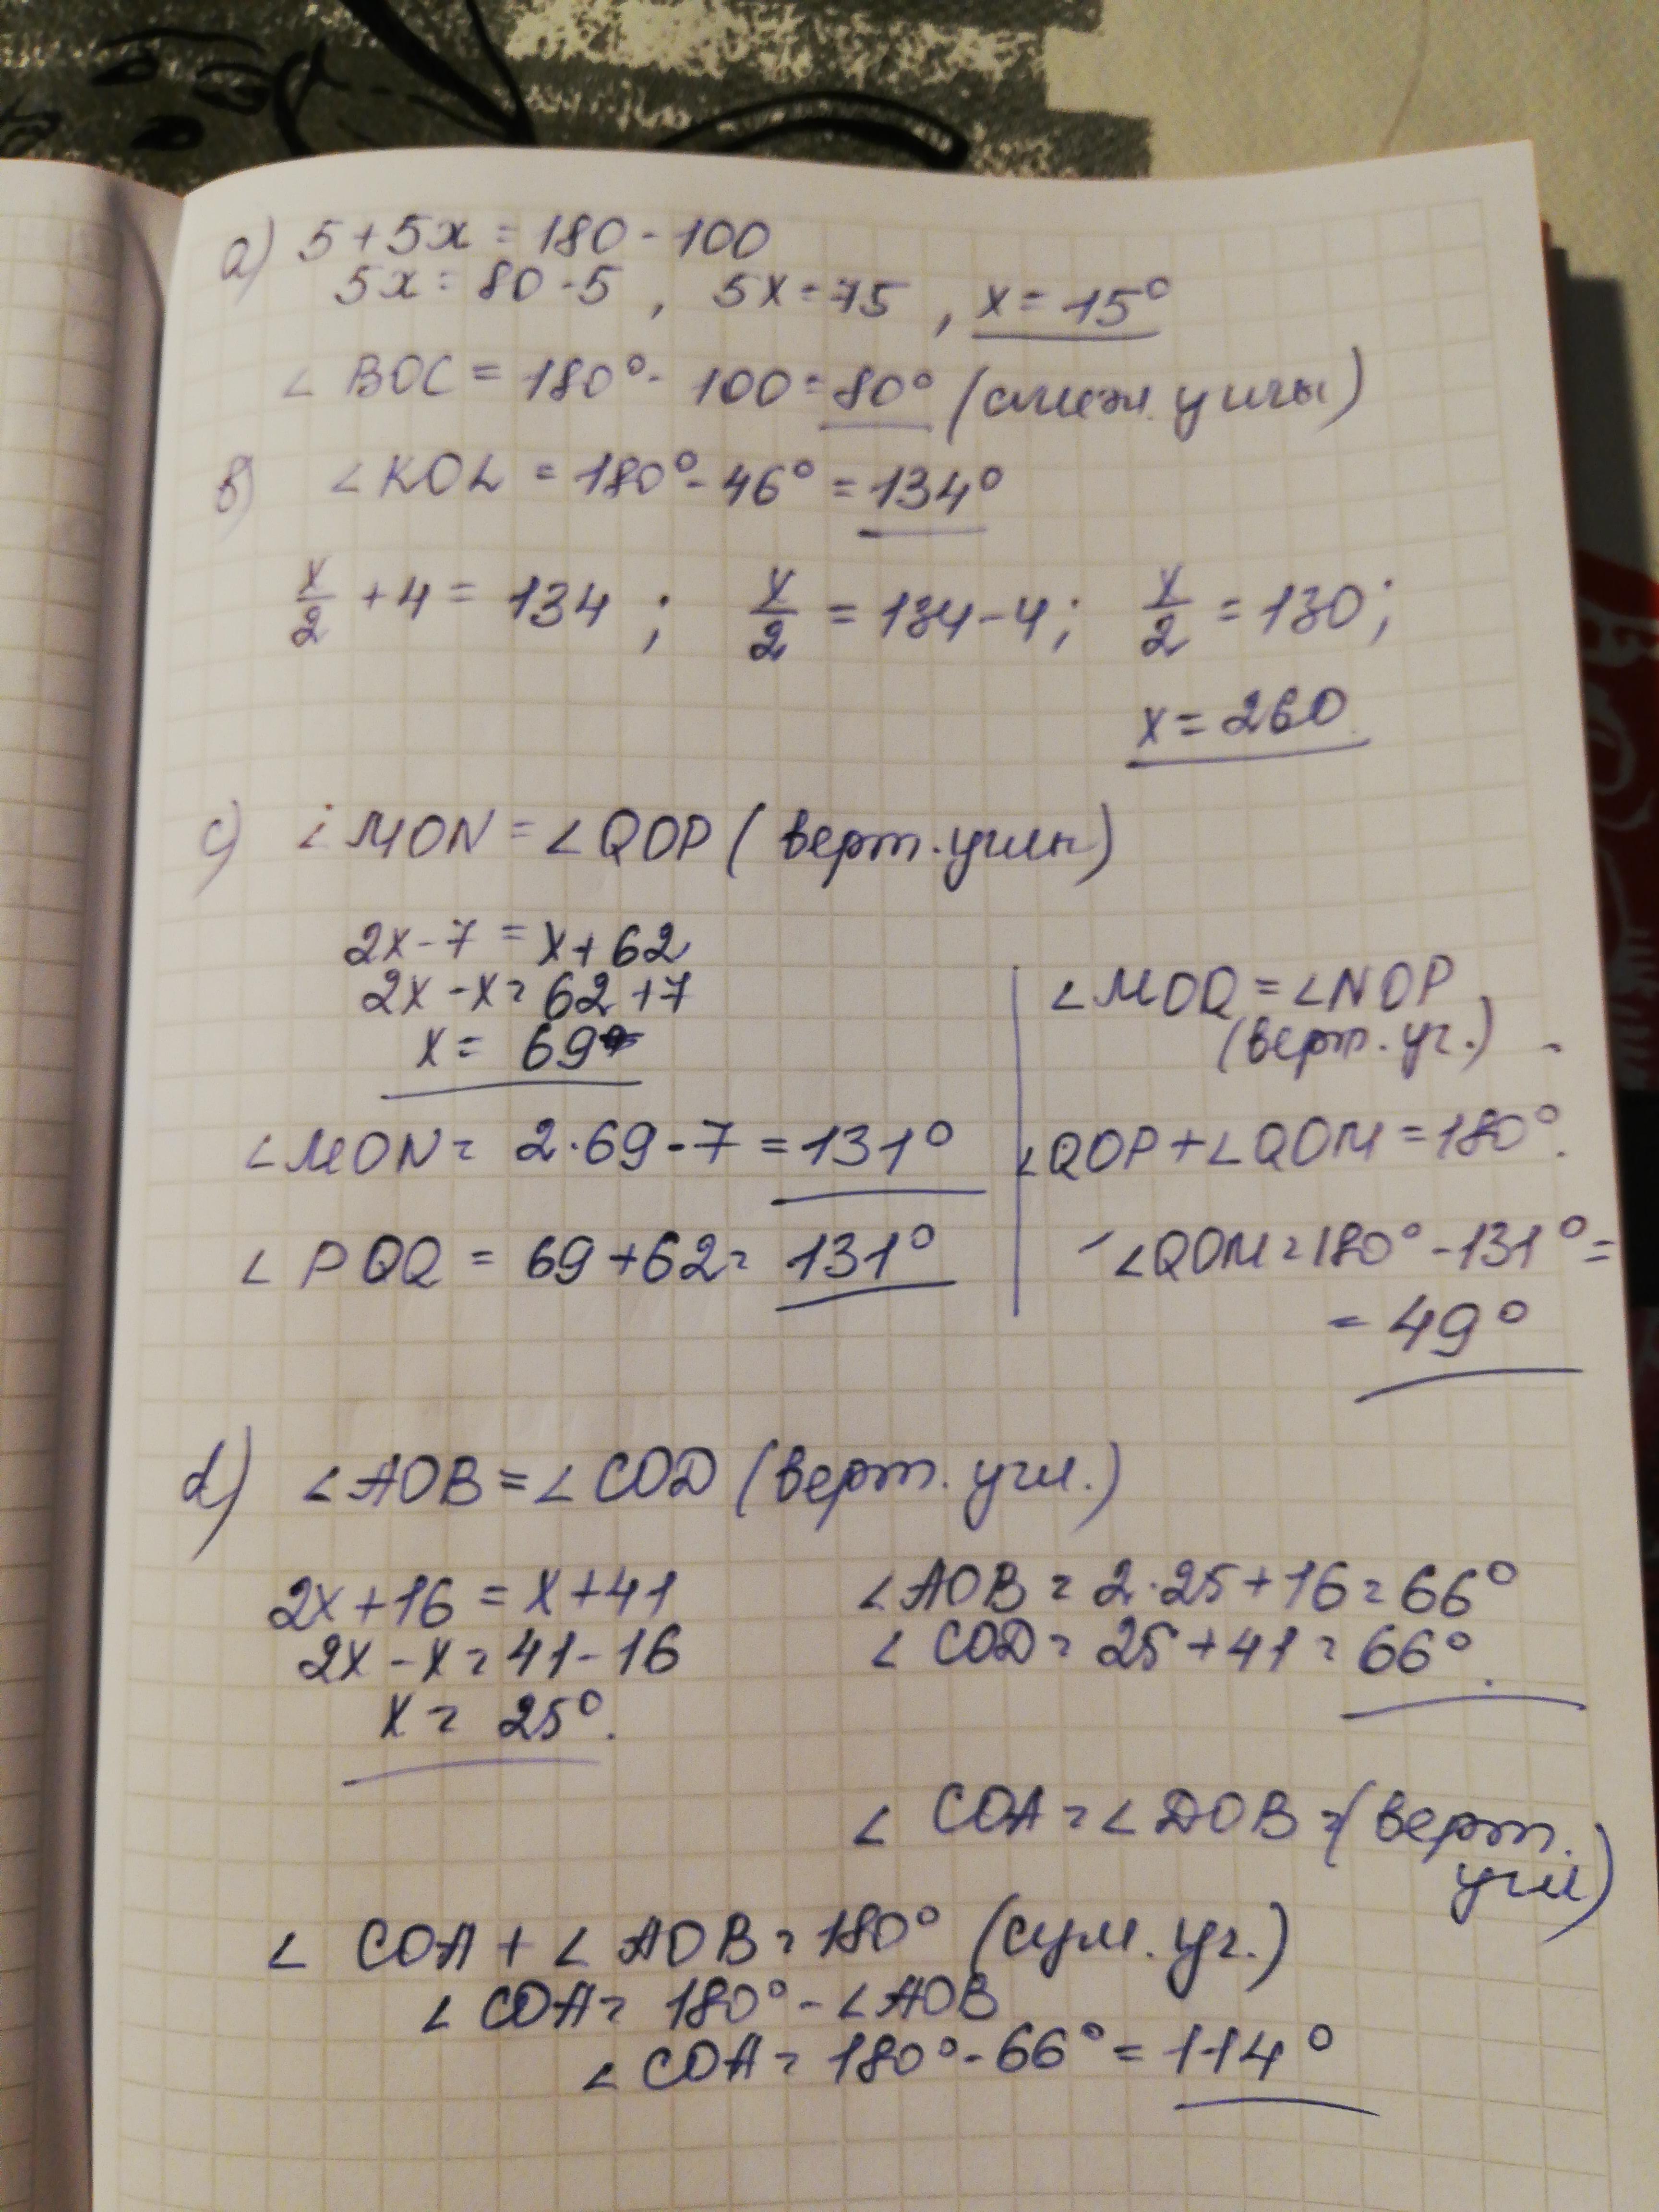 a) 5+5x = 180 - 100
5x = 80 - 5 , 5x = 75 , x = 15°
∠ BOC = 180° - 100 = 80° (смежн. углы)
в) ∠KOL = 180° - 46° = 134°
x/2 + 4 = 134 ; x/2 = 134 - 4 ; x/2 = 130 ;
x = 260
c) ∠MON = ∠QOP ( верт. углы)
2x - 7 = x + 62
2x - x = 62 + 7
x = 69
∠MON = 2·69 - 7 = 131°
∠ PQQ = 69 + 62 = 131°
∠MOQ = ∠NOP
(верт. уг.)
∠QOP + ∠QOM = 180°.
∠QOM = 180° - 131° =
= 49°
d) ∠AOB = ∠COD (верт. угл.)
2x + 16 = x + 41
2x - x = 41 - 16
x = 25°.
∠AOB = 2·25 + 16 = 66°
∠ COD = 25 + 41 = 66°.
∠ COA = ∠DOB = (верт.
угл)
∠ COA + ∠ AOB = 180° (сум. уг.)
∠ COA = 180° - ∠AOB
∠ COA = 180° - 66° = 114°